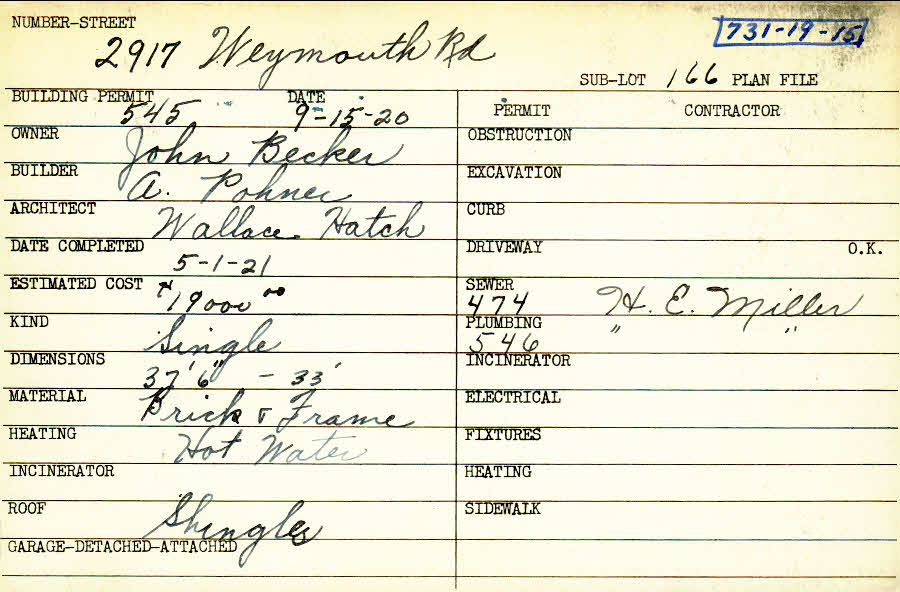 NUMBER-STREET
731-19-15
2917 Weymouth Rd
SUB-LOT 166 PLAN FILE
BUILDING PERMIT DATE PERMIT CONTRACTOR
545 9-15-20
OWNER John Becker OBSTRUCTION
BUILDER A. Pohner EXCAVATION
ARCHITECT Wallace Hatch CURB
DATE COMPLETED DRIVEWAY O.K.
5-1-21
ESTIMATED COST $19000 00 SEWER
474 H. E. Miller
KIND Single PLUMBING " "
546
DIMENSIONS 37' 6" - 33' INCINERATOR
MATERIAL Brick & Frame ELECTRICAL
HEATING Hot Water FIXTURES
INCINERATOR HEATING
ROOF Shingles SIDEWALK
GARAGE-DETACHED-ATTACHED